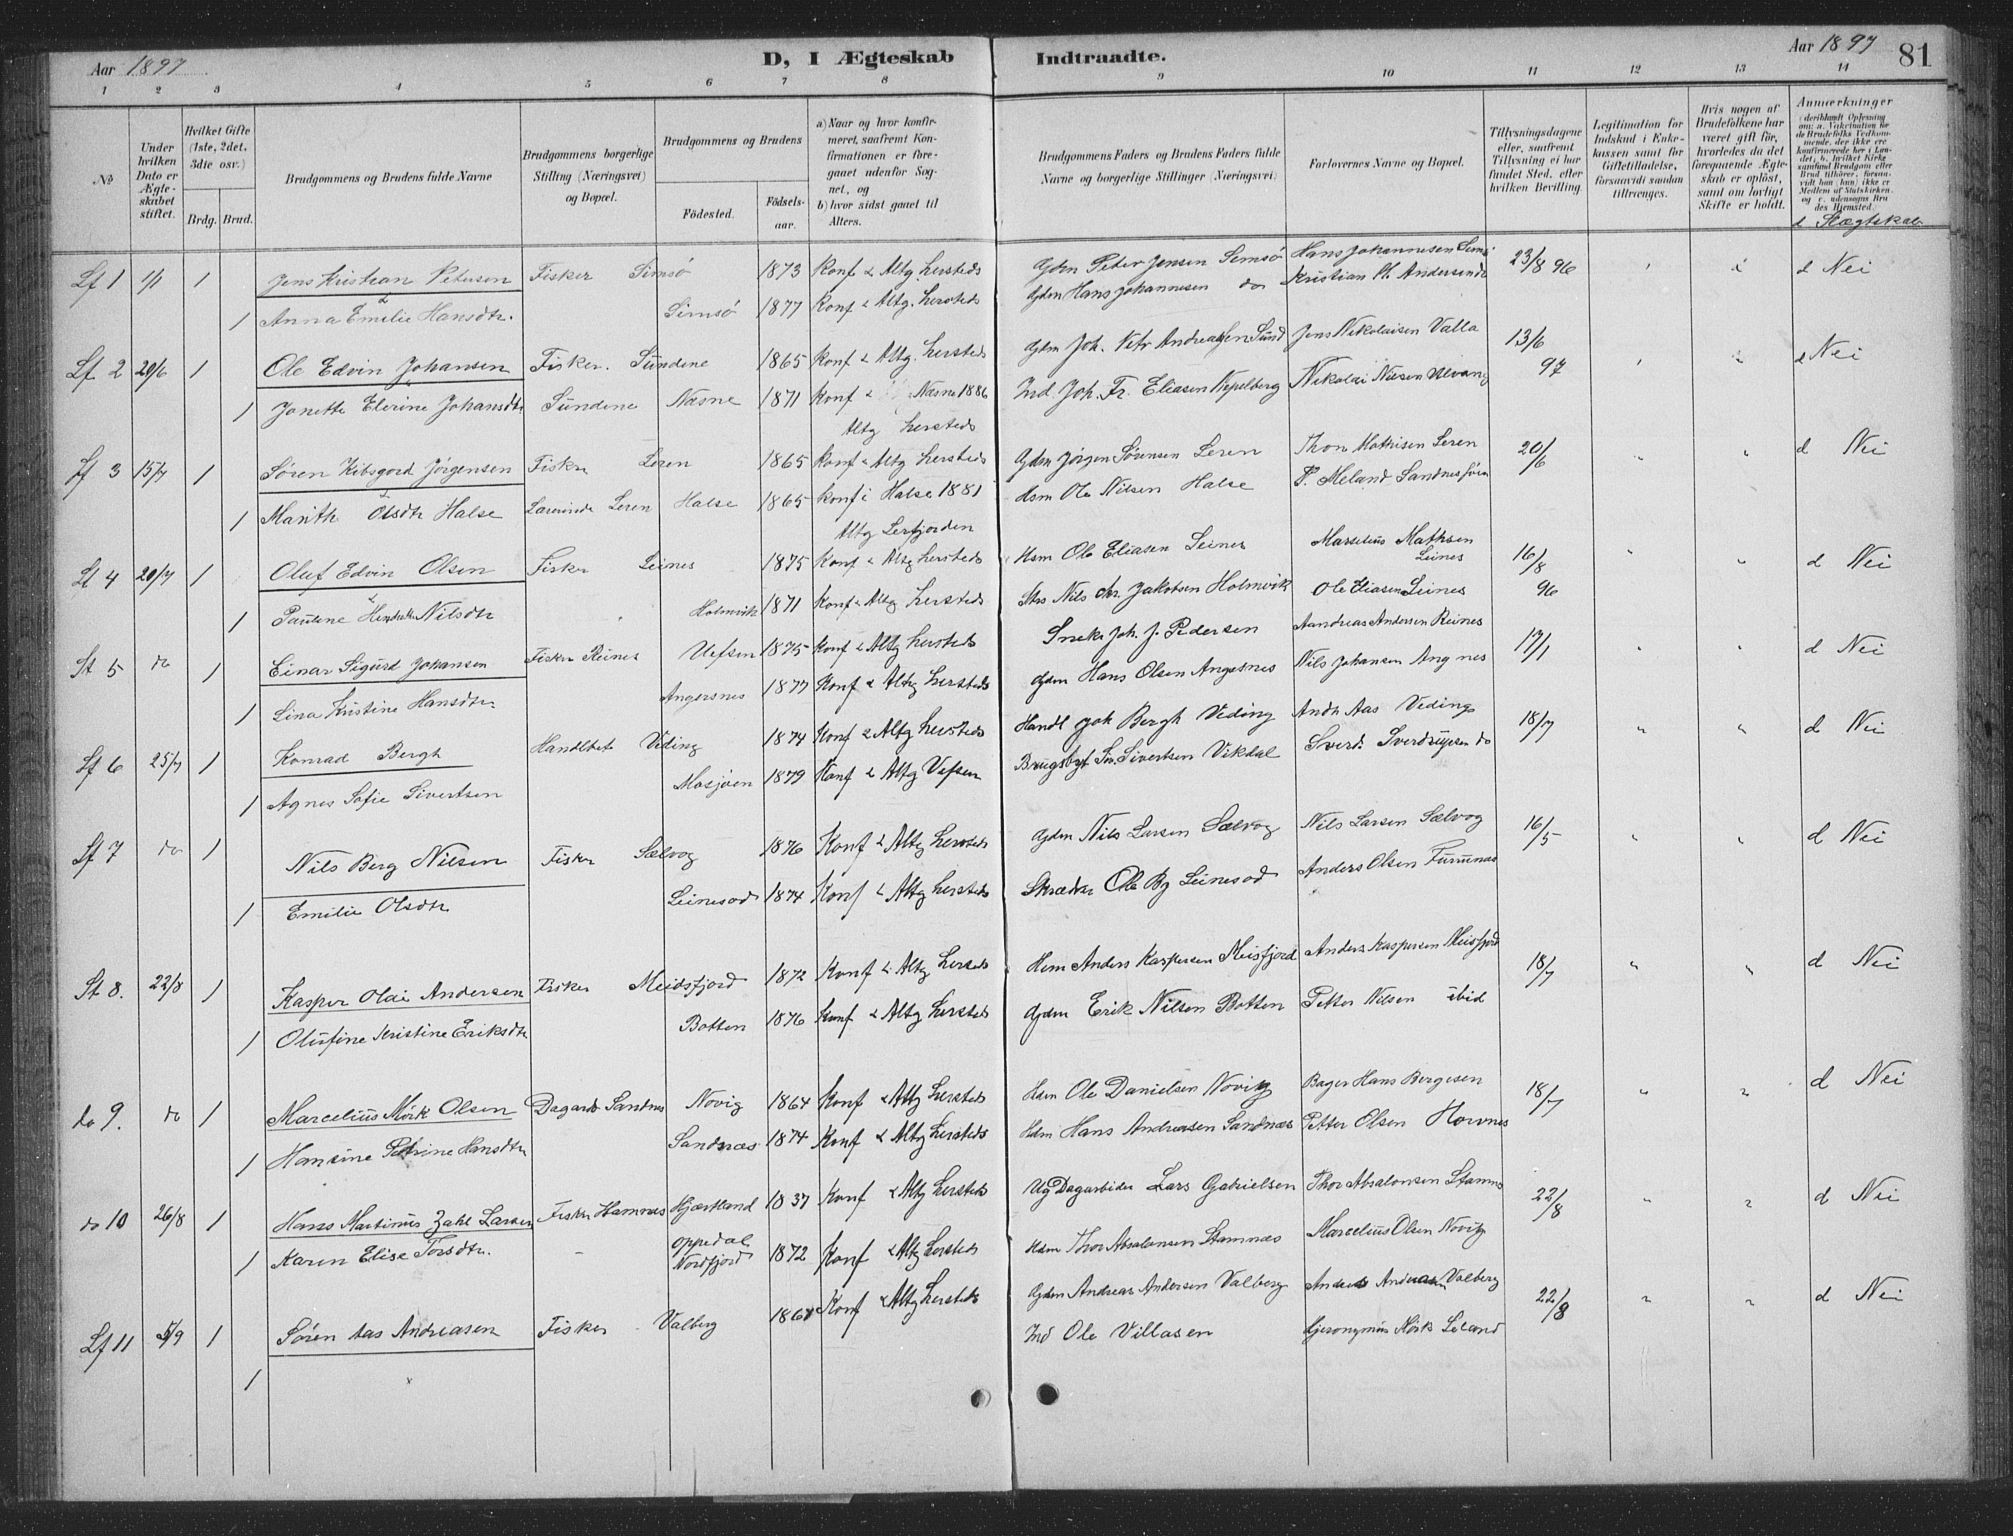 Aar 1897
D, I Ægteskab Indtraadte.
Aar 1897 81
1 2 3 4 5 6 7 8 9 10 11 12 13 14
No
Under hvilken Dato er Ægteskabet stiftet.
Hvilket Gifte (1ste, 2det, 3die osv.)
Brdg. Brud.
Brudgommens og Brudens fulde Navne
Brudgommens borgerlige Stilling (Næringsvei) og Bopæl.
Brudgommens og Brudens
Fødested. Fødselsaar.
a) Naar og hvor konfirmeret, saafremt Konfirmationen er foregaaet udenfor Sognet, og
b) hvor sidst gaaet til Alters.
Brudgommens Faders og Brudens Faders fulde Navne og borgerlige Stillinger (Næringsvei)
Forlovernes Navne og Bopæl.
Tillysningsdagene eller, saafremt Tillysning ei har fundet Sted, efter hvilken Bevilling.
Legitimation for Indskud i Enkekassen samt for Giftetilladelse, forsaavidt saadan tiltrænges.
Hvis nogen af Brudefolkene har været gift før, hvorledes da det foregaaende Ægteskab er opløst, samt om lovligt Skifte er holdt.
Anmærkninger (deriblandt Oplysning om: a. Vakcination for de Brudefolks Vedkommende, der ikke ere konfirmerede her i Landet; b. hvilket Kirkesamfund Brudgom eller Brud tilhører, forsaavidt han (hun) ikke er Medlem af Statskirken, og c. udensogns Brudes Hjemsted.
d Slægtskab
Lf 1 1/1 1 Jens Kristian Petersen Fisker Simsø 1873 Konf & Altg hersteds Gdm Peter Jensen Semsø Hans Johannesen 23/8 96 d Nei
& 1 Anna Emilie Hansdtr. Simsø 1877 Konf & Altg. hersteds Gdm Hans Johannesen do Kristian Andersen
Lf 2 20/6 1 Ole Edvin Johansen Fisker. Sundene 1865 Konf & Altg. hersteds Gdm Joh. Petr Andreassen Sund Jens Nikolaisen Valla 13/6 97 d Nei
1 Janette Elerine Johansdtr Sundene Næsne 1871 Konf & Næsne 1886 Ind. Joh. Fr. Eliasen Nikolai Nilsen Ulvang
Altg hersteds
Lf 3 15/7 1 Søren Kibsgord Jørgensen Fisker Leren 1865 Konf & Altg hersteds Gdm Jørgen Sørensen Leren Thon Mathisen Leren 20/6 d Nei
1 Marith Olsdtr Halse Leren Halse 1865 Konf i Halse 1881 Hsm Ole Nilsen Halse P. Meland Sandnessjøen
Altg Lerfjorden
Lf 4 20/7 1 Oluf Edvin Olsen Fisker Leines 1875 Konf & Altg hersteds Hsm Ole Eliasen Leines Marselius Mathsen Leines 16/8 96 d Nei
& 1 Pauline Nilsdtr Holmvik 1871 Konf & Altg hersteds Nils Chr. Jakobsen Holmvik Ole Eliasen Leines
St 5 do 1 Einar Sigurd Johansen Fisker Reines Vefsen 1875 Konf & Altg hersteds Snek. Joh. J. Pedersen Aandreas Andersen Reines 17/1 d Nei
1 Lina Kristine Hansdtr. Angersnes 1877 Konf & Altg hersteds Gdm Hans Olsen Angesnes Nils Johansen Angnes
Lf 6 25/7 1 Konrad Bergh Handlbet Viding 1874 Konf & Altg hersteds Handl Joh Bergh Viding Andr Aas Viding 18/7 d Nei
1 Agnes Sofie Sivertsen Mosjøen 1879 Konf & Altg Vefsen Sivertsen Vikdal Sverd. do
Lf 7 do 1 Nils Berg Nilsen Fisker Sælvog 1876 Konf & Altg hersteds Gdm Nils Larsen Sælvog Nils Larsen Sælvog 16/5 d Nei
1 Emilie Olsdtr Leinesod 1874 Konf & Altg hersteds Skrædder Ole Leinesod Anders Olsen Furunæs
St 8. 22/8 1 Kasper Olai Andersen Fisker Meidsfjord 1872 Konf & Altg hersteds Hsm Anders Kaspersen Meisfjord Anders Kaspersen Meisfjord 18/7 d Nei
1 Olufine Kristine Eriksdtr Botten 1876 Konf & Altg hersteds Gdm Erik Nilsen Botten Petter Nilsen ibid
do 9. do 1 Marcelius Mörk Olsen Dagarb Sandnes Novig 1864 Konf & Altg hersteds Hsm Ole Danielsen Novig Bager Hans Bergesen 18/7 d Nei
1 Hansine Petrine Hansdtr Sandnæs 1874 Konf & Altg hersteds Hsm Hans Andreasen Sandnæs Petter Olsen Hornes
do 10 26/8 1 Hans Martinus Zahl Larsen Fisker Hamnes Hjartland 1837 Konf & Altg hersteds Ug Dagarbider Lars Gabrielsen Thor Absalonsen Stamnes 22/8 d Nei
1 Karen Elise Torsdtr. Oppedal Nordfjord 1872 Konf & Altg hersteds Hsm Thor Absalonsen Stamnæs Marcelius Olsen Novig
Lf 11 5/9 1 Søren Aas Andreasen Fisker Valberg Konf & Altg hersteds Gdm Andreas Andersen Valberg Anders Andreasen Valberg 22/8 d Nei
1 Ind Ole Villasen Hjeronymus Mörk Leland